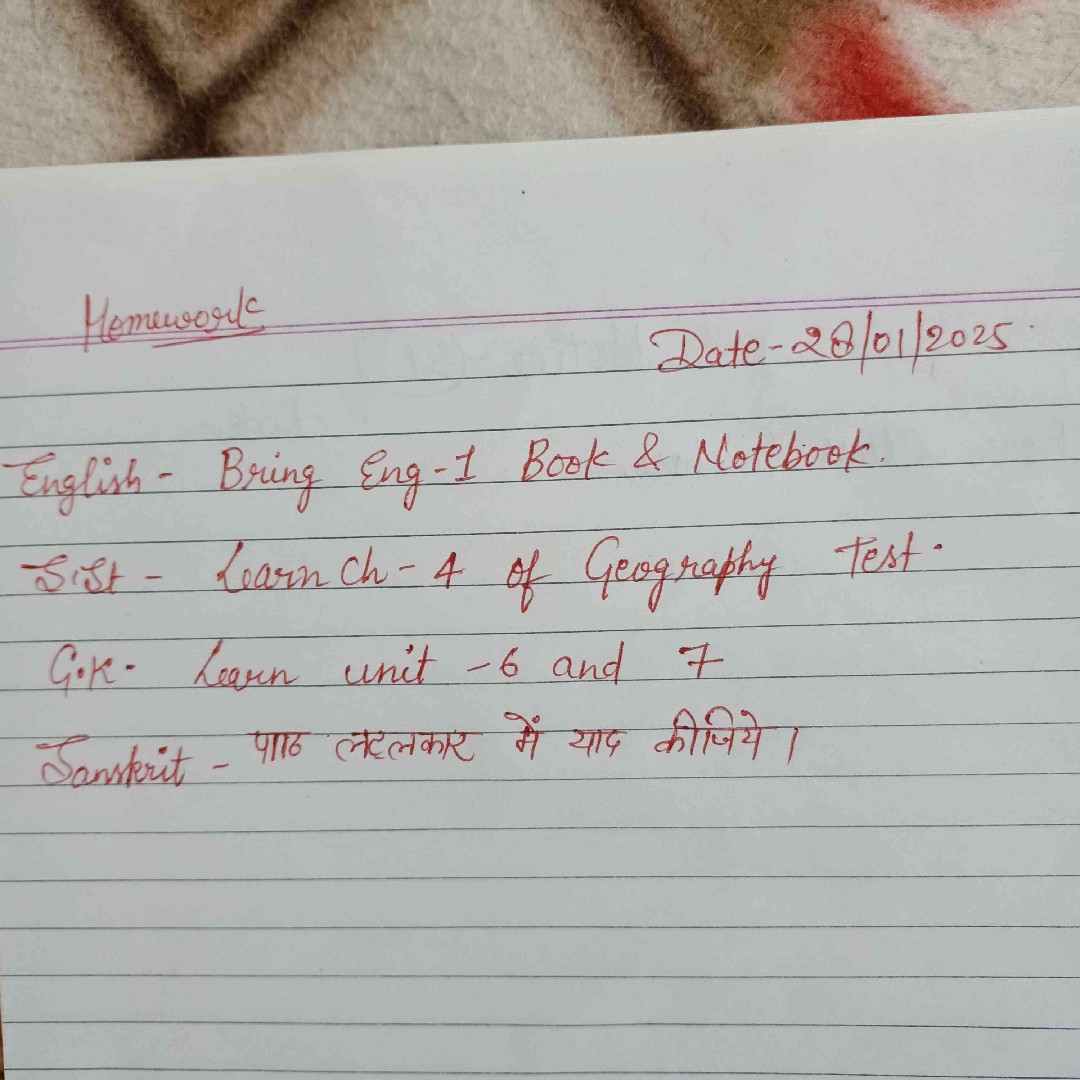 Homework
Date-28/01/2025
English - Bring Eng-1 Book & Notebook.
S.St - Learn Ch-4 of Geography Test.
G.K- Learn unit -6 and 7
Sanskrit - पाठ लटलकार में याद कीजिये।